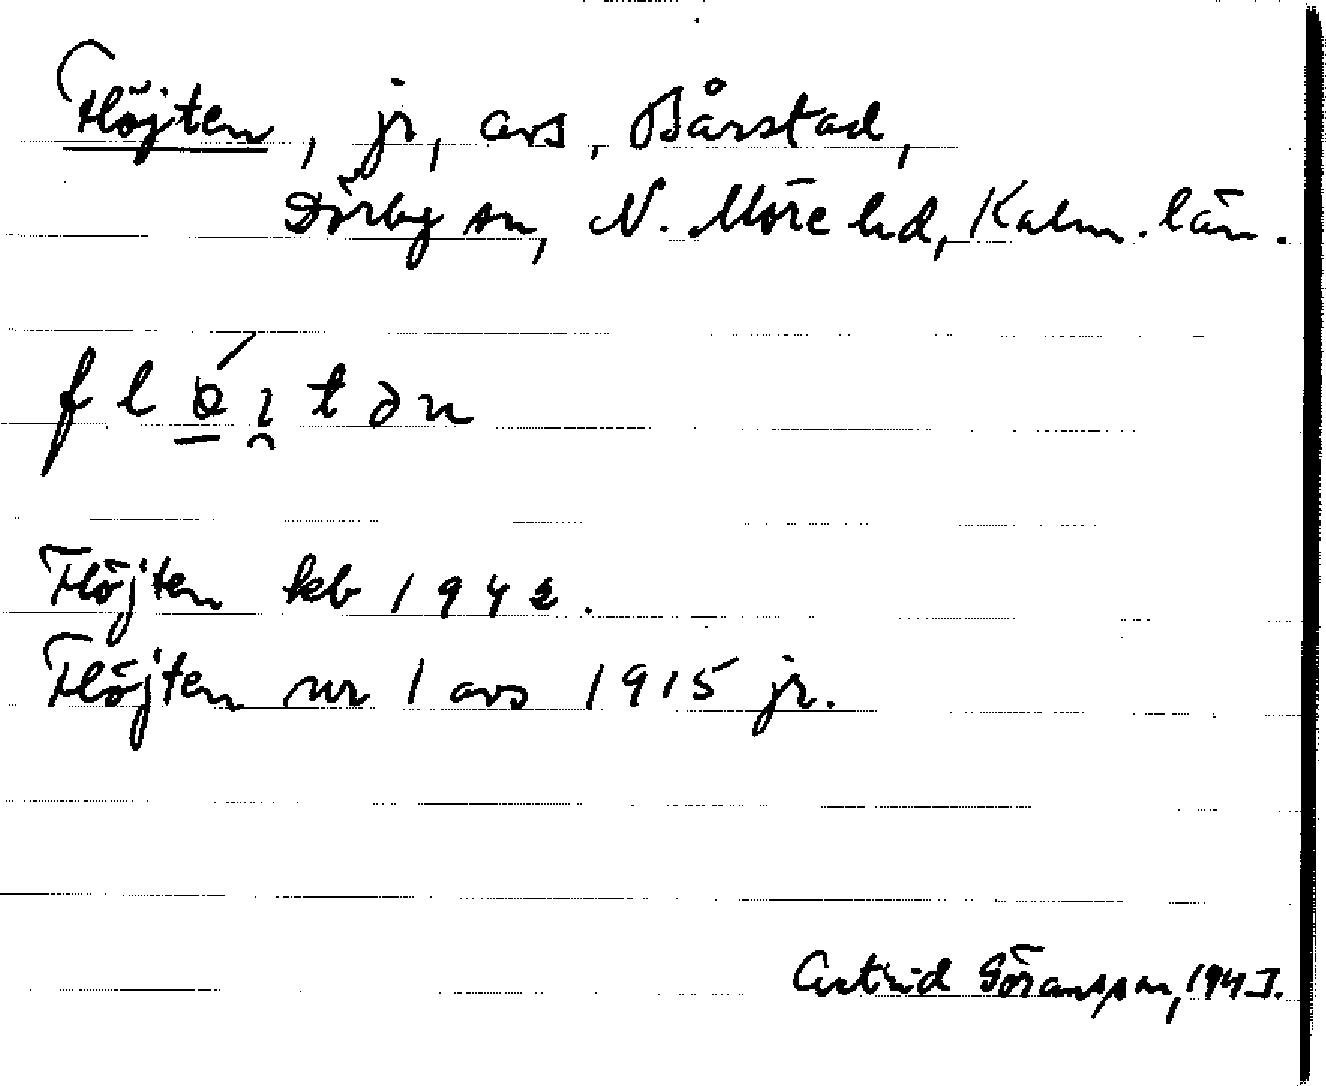 Flöjten, jr, avs, Bårstad,
Dörby sn, N. Möre hd, Kalm. län.
flǿi̯tən
Flöjten kb 1942.
Flöjten nr 1 avs 1915 jr.
Astrid Göransson, 1943.